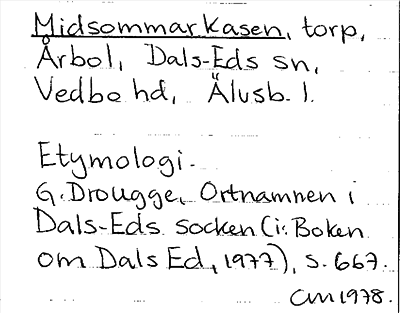 Midsommarkasen, torp,
Årbol, Dals-Eds sn,
Vedbo hd, Älvsb. l.
Etymologi.
G. Drougge, Ortnamnen i
Dals-Eds socken (i: Boken
om Dals Ed, 1977), s. 667.
CM 1978.